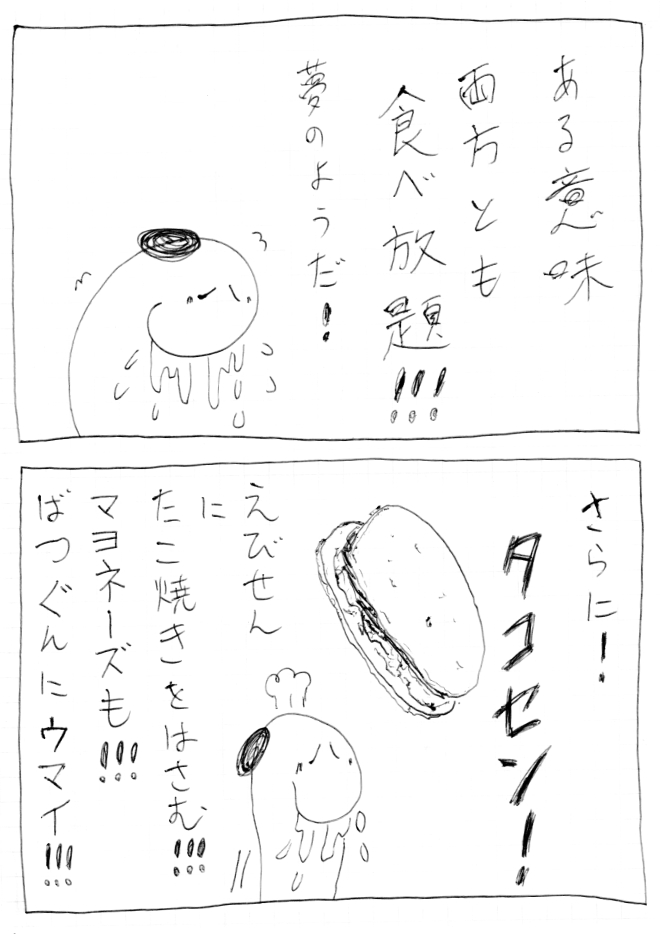 ある意味
両方とも
食べ放題!!!
夢のようだ!
さらに!
タコセン!
えびせん
に
たこ焼きをはさむ!!!
マヨネーズも!!!
ばつぐんにウマイ!!!